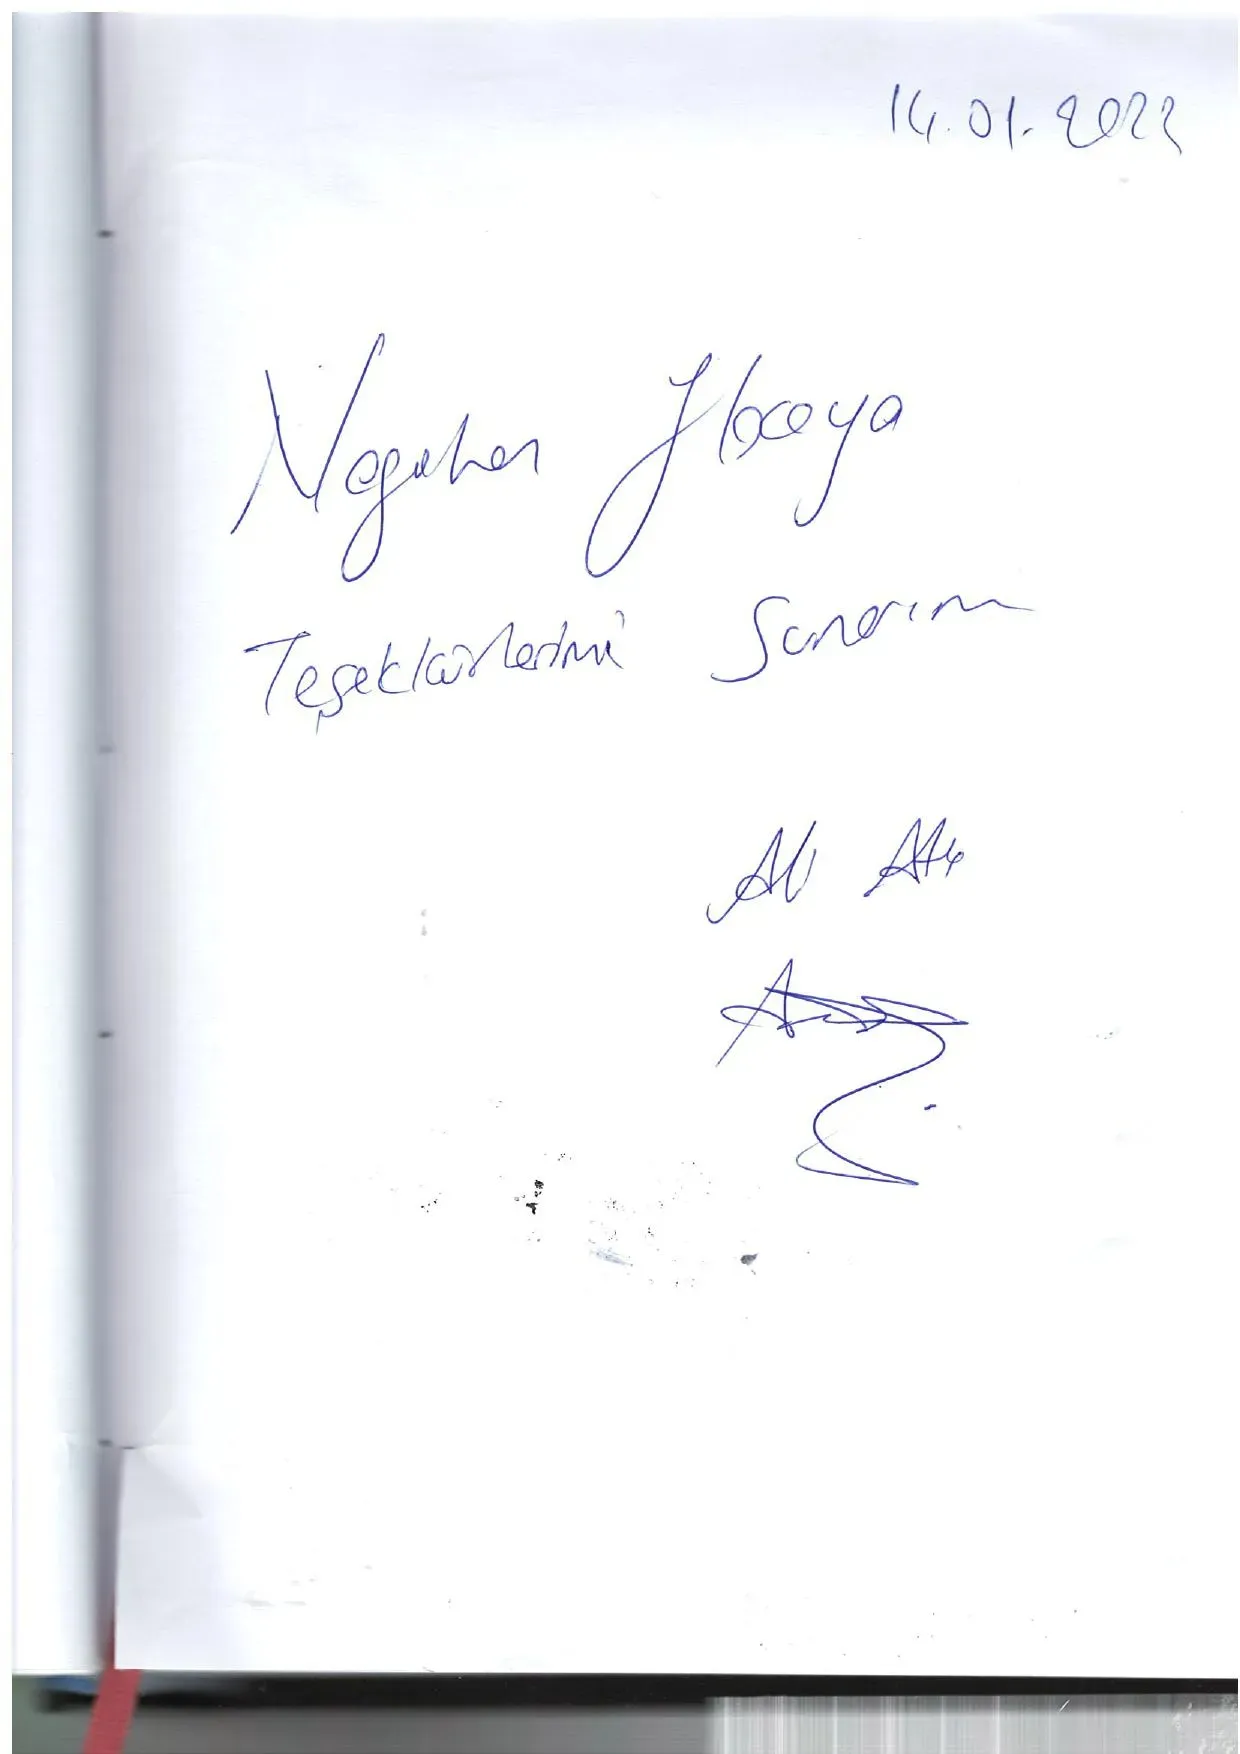 14.01.2022
Nagehan Hocaya
Teşekkürlerimi Sunarım
Ali